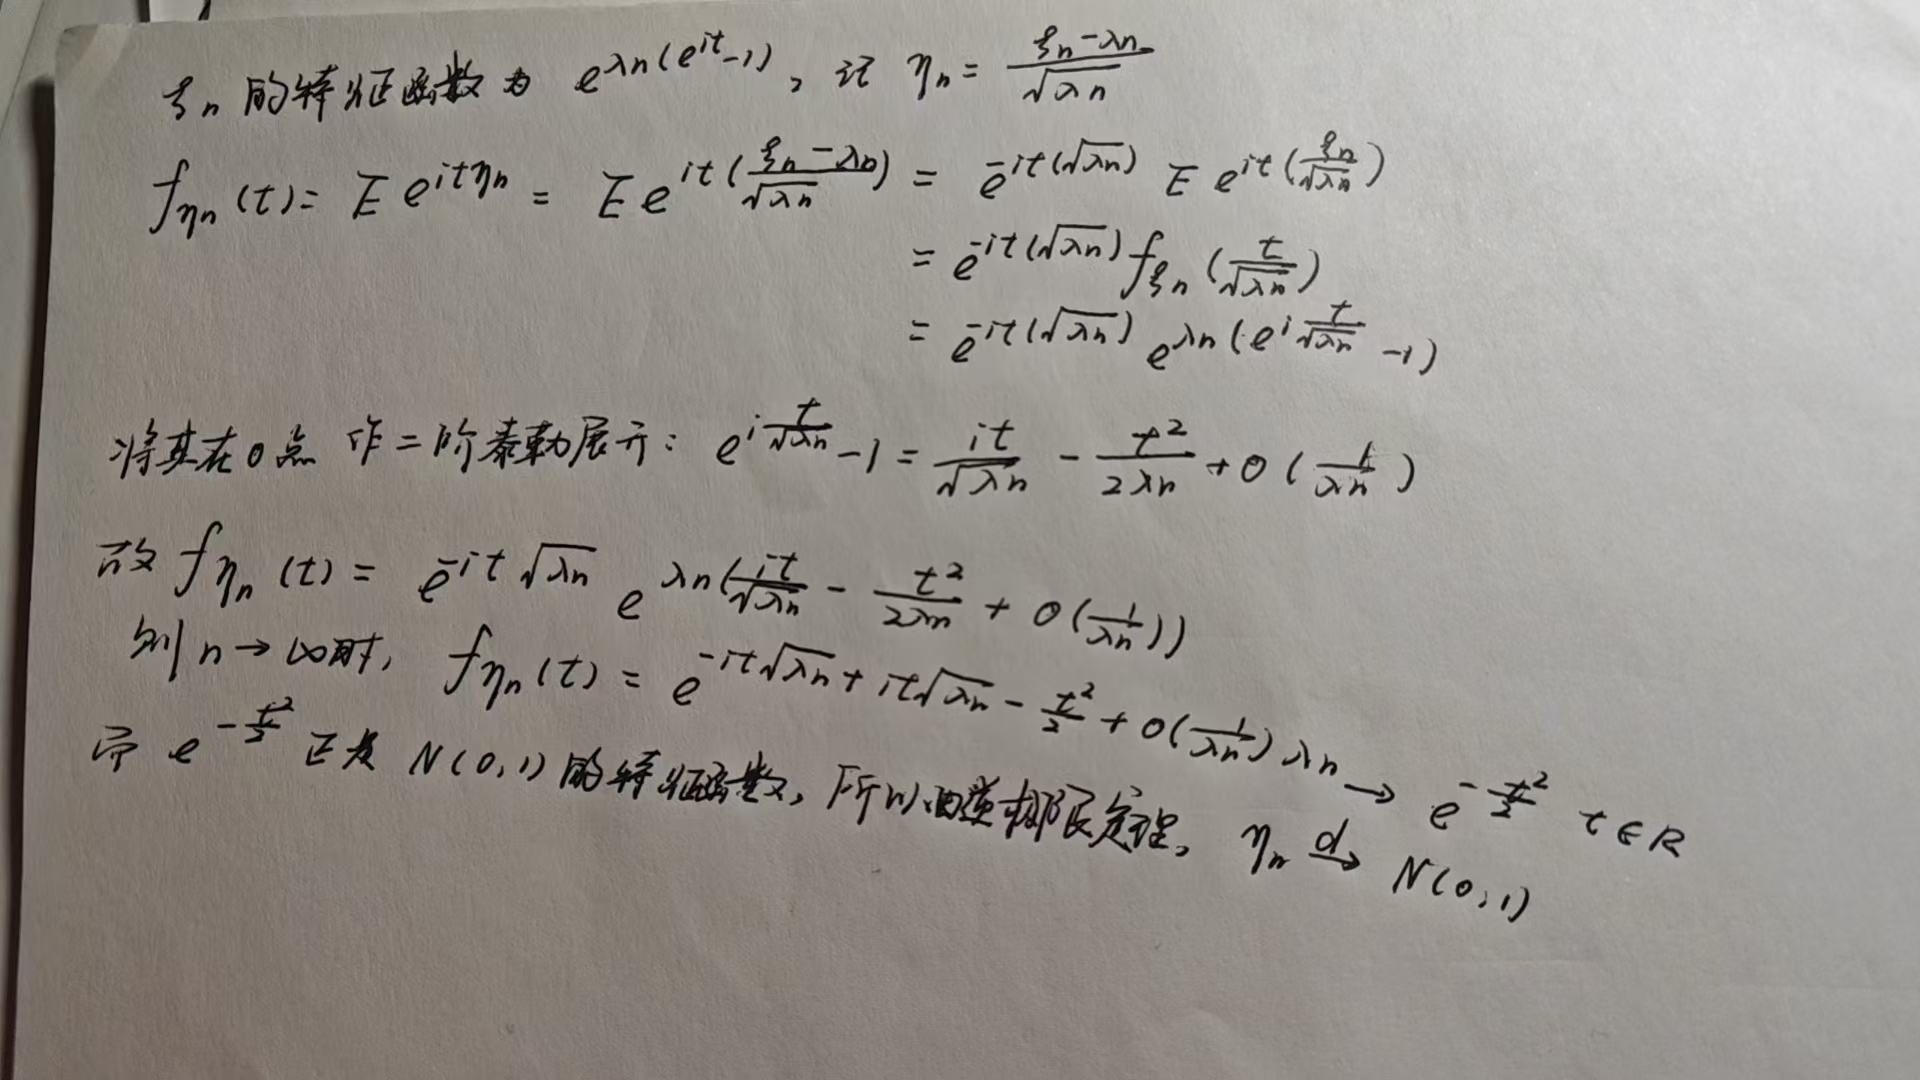 ξn 的特征函数为 e^{λn(e^{it}-1)}, 记 ηn = (ξn-λn)/√(λn)
f_{ηn}(t) = E e^{itηn} = E e^{it((ξn-λn)/√(λn))} = e^{-it(√(λn))} E e^{it(ξn/√(λn))}
= e^{-it(√(λn))} f_{ξn}(t/√(λn))
= e^{-it(√(λn))} e^{λn(e^{i t/√(λn)}-1)}
将其在0点 作二阶泰勒展开: e^{i t/√(λn)}-1 = it/√(λn) - t²/(2λn) + o(1/(λn))
故 f_{ηn}(t) = e^{-it√(λn)} e^{λn(it/√(λn) - t²/(2λn) + o(1/(λn)))}
则 n→∞时, f_{ηn}(t) = e^{-it√(λn) + it√(λn) - t²/2 + o(1/(λn))λn} → e^{-t²/2} t∈R
而 e^{-t²/2} 正是 N(0,1) 的特征函数, 所以由逆极限定理, ηn \xrightarrow{d} N(0,1)